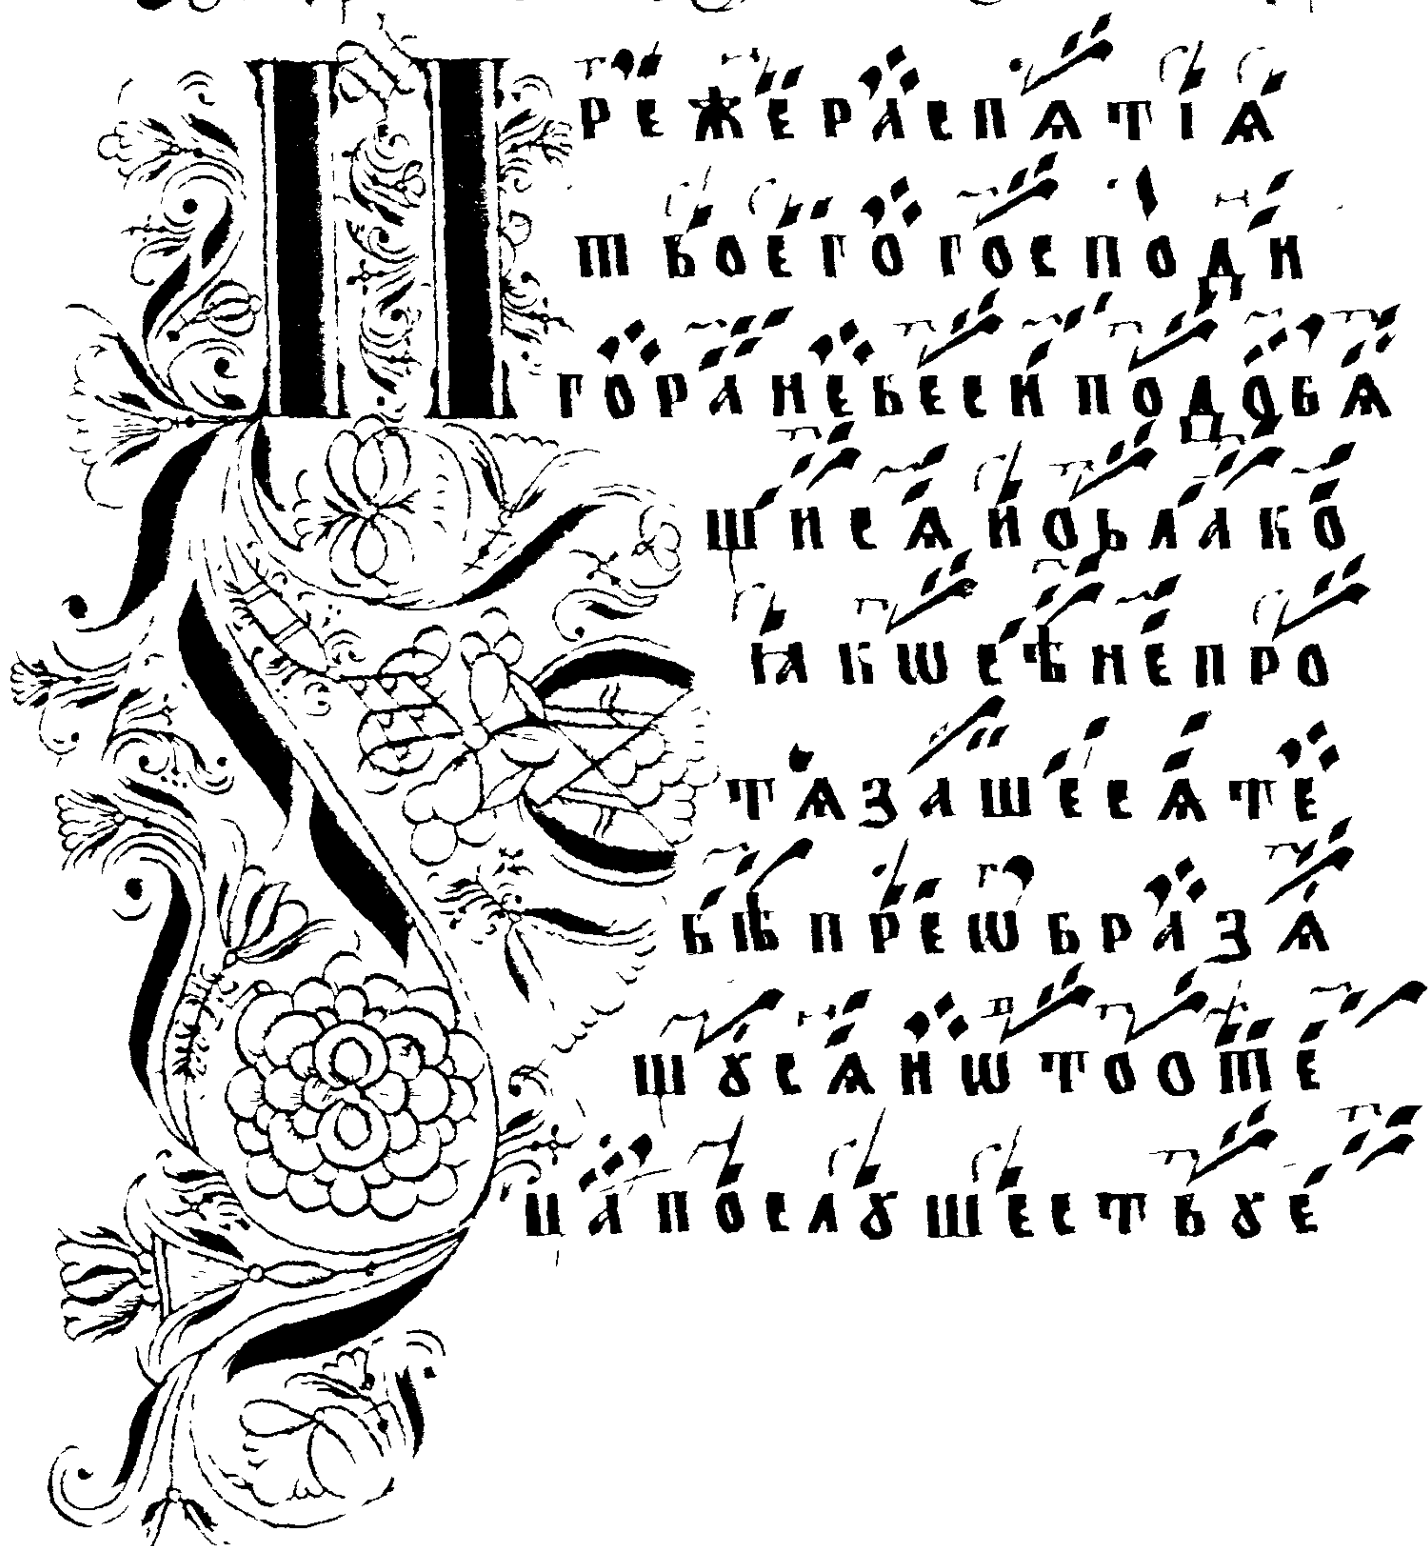 П РЕЖЕ РАСПѦТІѦ
ТВОЕГО ГОСПОДИ
ГОРА НЕБЕСИ ПОДОБѦ
ШИСѦ И ОБЛАКО
ꙖКѠ СѢНЕ ПРО
ТѦЗАШЕСѦ ТЕ
БѢ ПРЕѠБРАЗѦ
ШꙊСѦ И Ѡ ТО ОТЕ
ЦА ПОСЛꙊШЕСТВꙊЕ